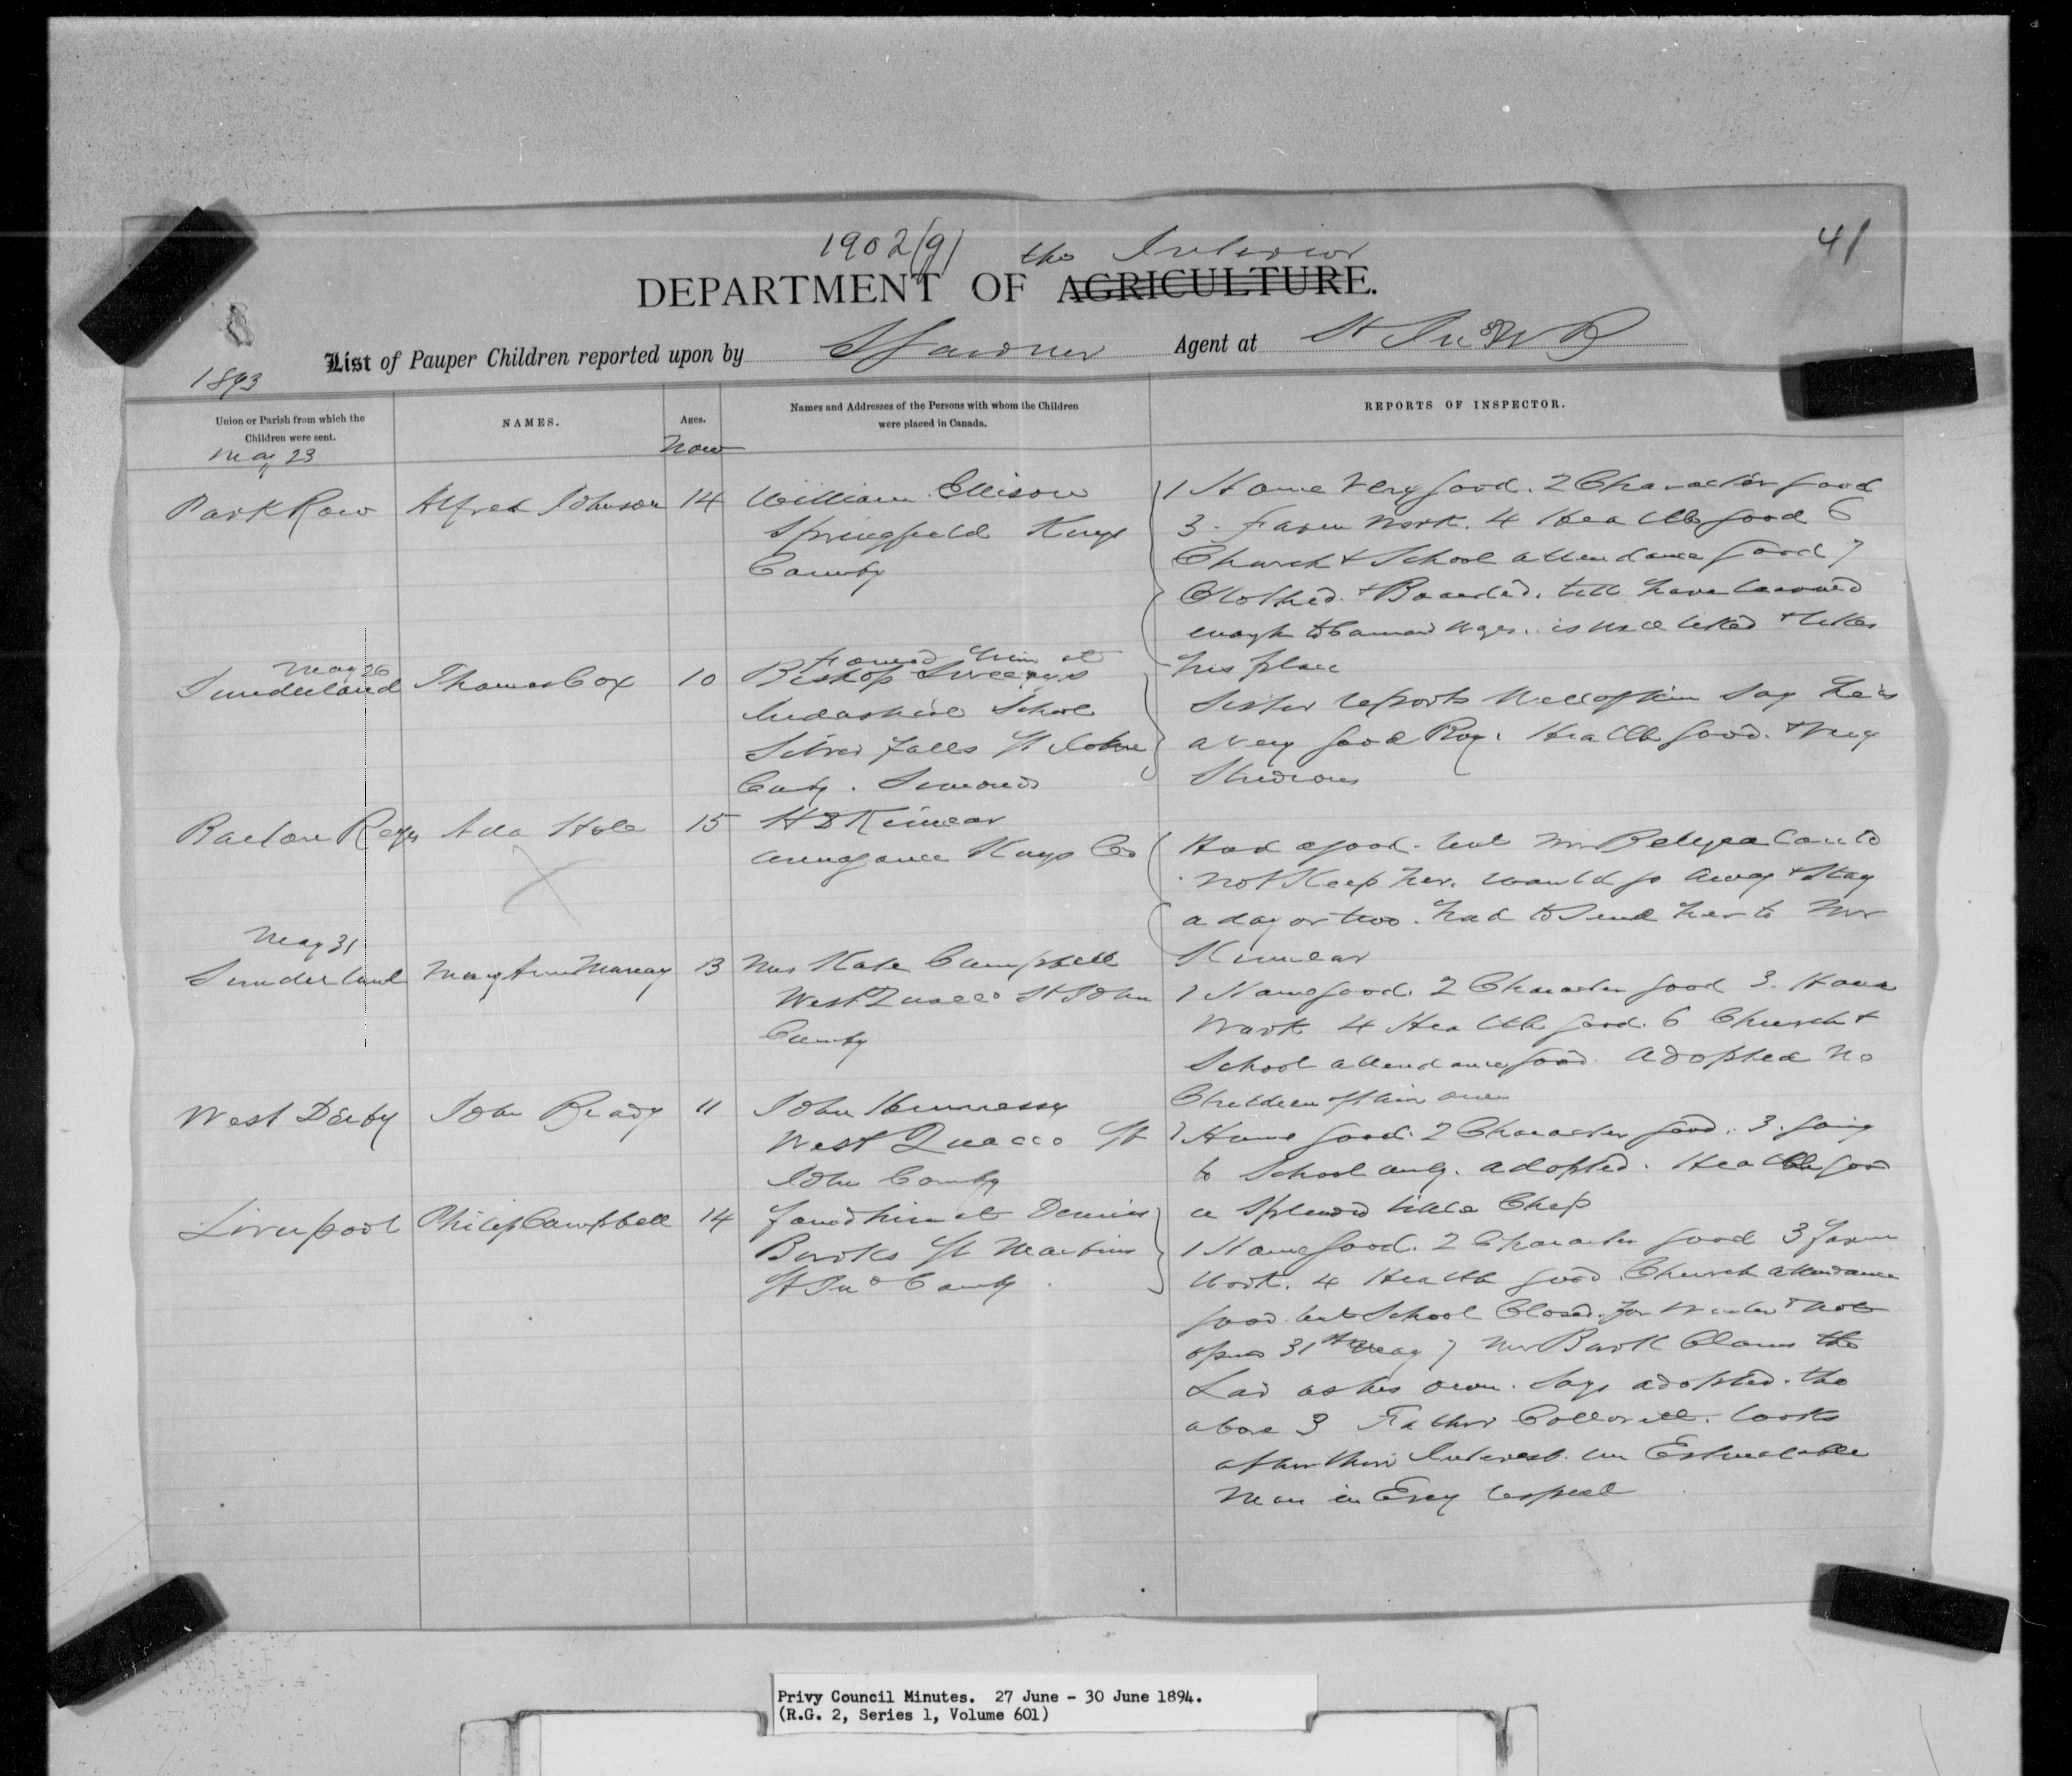 1902(g) the Interior
41
DEPARTMENT OF AGRICULTURE.
8
List of Pauper Children reported upon by S Gardner Agent at St Jno N B
1893
Union or Parish from which the
Children were sent.
NAMES.
Ages.
Names and Addresses of the Persons with whom the Children
were placed in Canada.
REPORTS OF INSPECTOR.
May 23
Now
Park Row Alfred Johnson 14 William Ellison
Springfield Kings
County
1 Home very good. 2 Character good
3. Farm work. 4 Health good 6
Church & School attendance good 7
Clothed & Boarded. till have learned
enough to earn wages. is well liked & likes
his place
May 26
Sunderland Thomas Cox 10 found him at
Bishop Sweeny's
Industrial School
Silver Falls St John
County. Simonds
Sister reports well of him say he is
a very good Boy. Health good. & very
Studious
Barton Regis Ada Hole 15 H D Kinnear
Kings Co
Had a good. but Mr Belyea could
not keep her. would go away & stay
a day or two. had to send her to Mr
Kinnear
May 31
Sunderland Mary Ann 13 Mrs Kate Campbell
West Quaco St John
County
1 Home good. 2 Character good 3. House
work 4 Health good. 6 Church &
School attendance good. adopted no
Children of their own
West Derby John Brady 11 John Hennessy
West Quaco St
John County
1 Home good. 2 Character good. 3. going
to School only. adopted. Health good
a splendid little Chap
Liverpool Philip Campbell 14 found him at Dennis
Burks St Martins
St Jno County
1 Home good. 2 Character good 3 farm
work. 4 Health good Church attendance
good but School Closed for Winter & not
open 31st May 7 Mr Burk Claims the
Lad as his own. Says adopted. the
above 3 Father looks
after their Interest. an Estimable
Man in Every respect
Privy Council Minutes. 27 June - 30 June 1894.
(R.G. 2, Series 1, Volume 601)